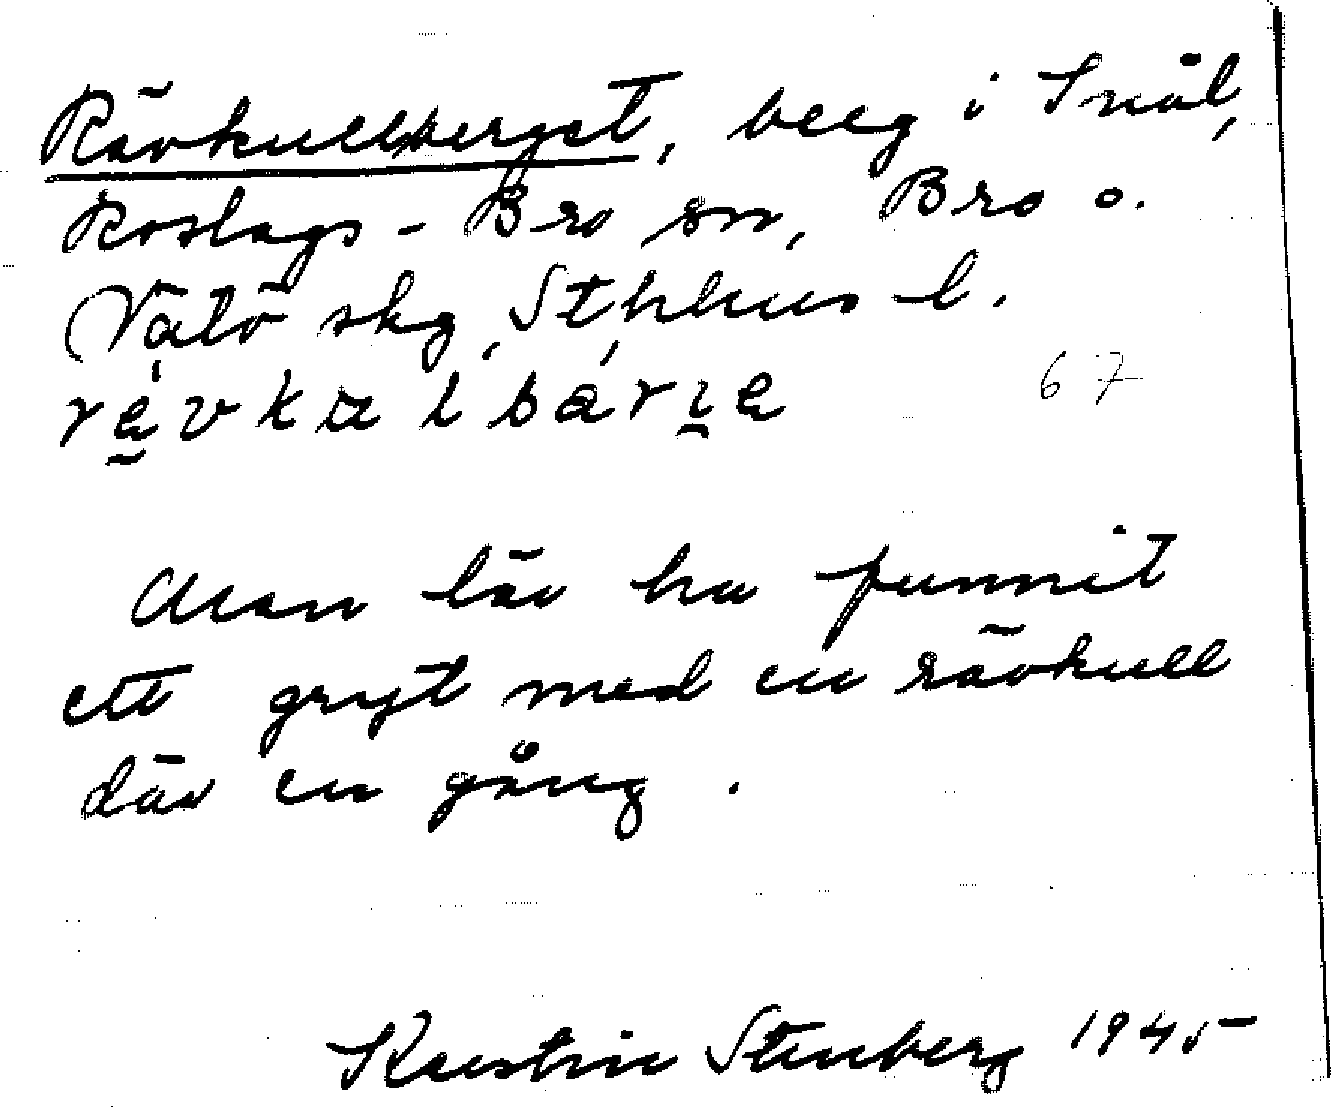 Rävkullberget, berg i Snäl,
Roslags-Bro sn, Bro o.
Vätö skg, Sthlms l.
67
Man lär ha funnit
ett gryt med en rävkull
där en gång.
Kerstin Stenberg 1945